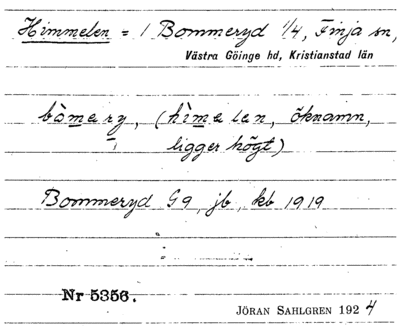 Himmelen = 1 Bommeryd 1/4, Finja sn,
Västra Göinge hd, Kristianstad län
bòmery, (hìmelen, öknamn,
ligger högt)
Bommeryd G9, jb, kb 1919
Nr 5356.
JÖRAN SAHLGREN 1924